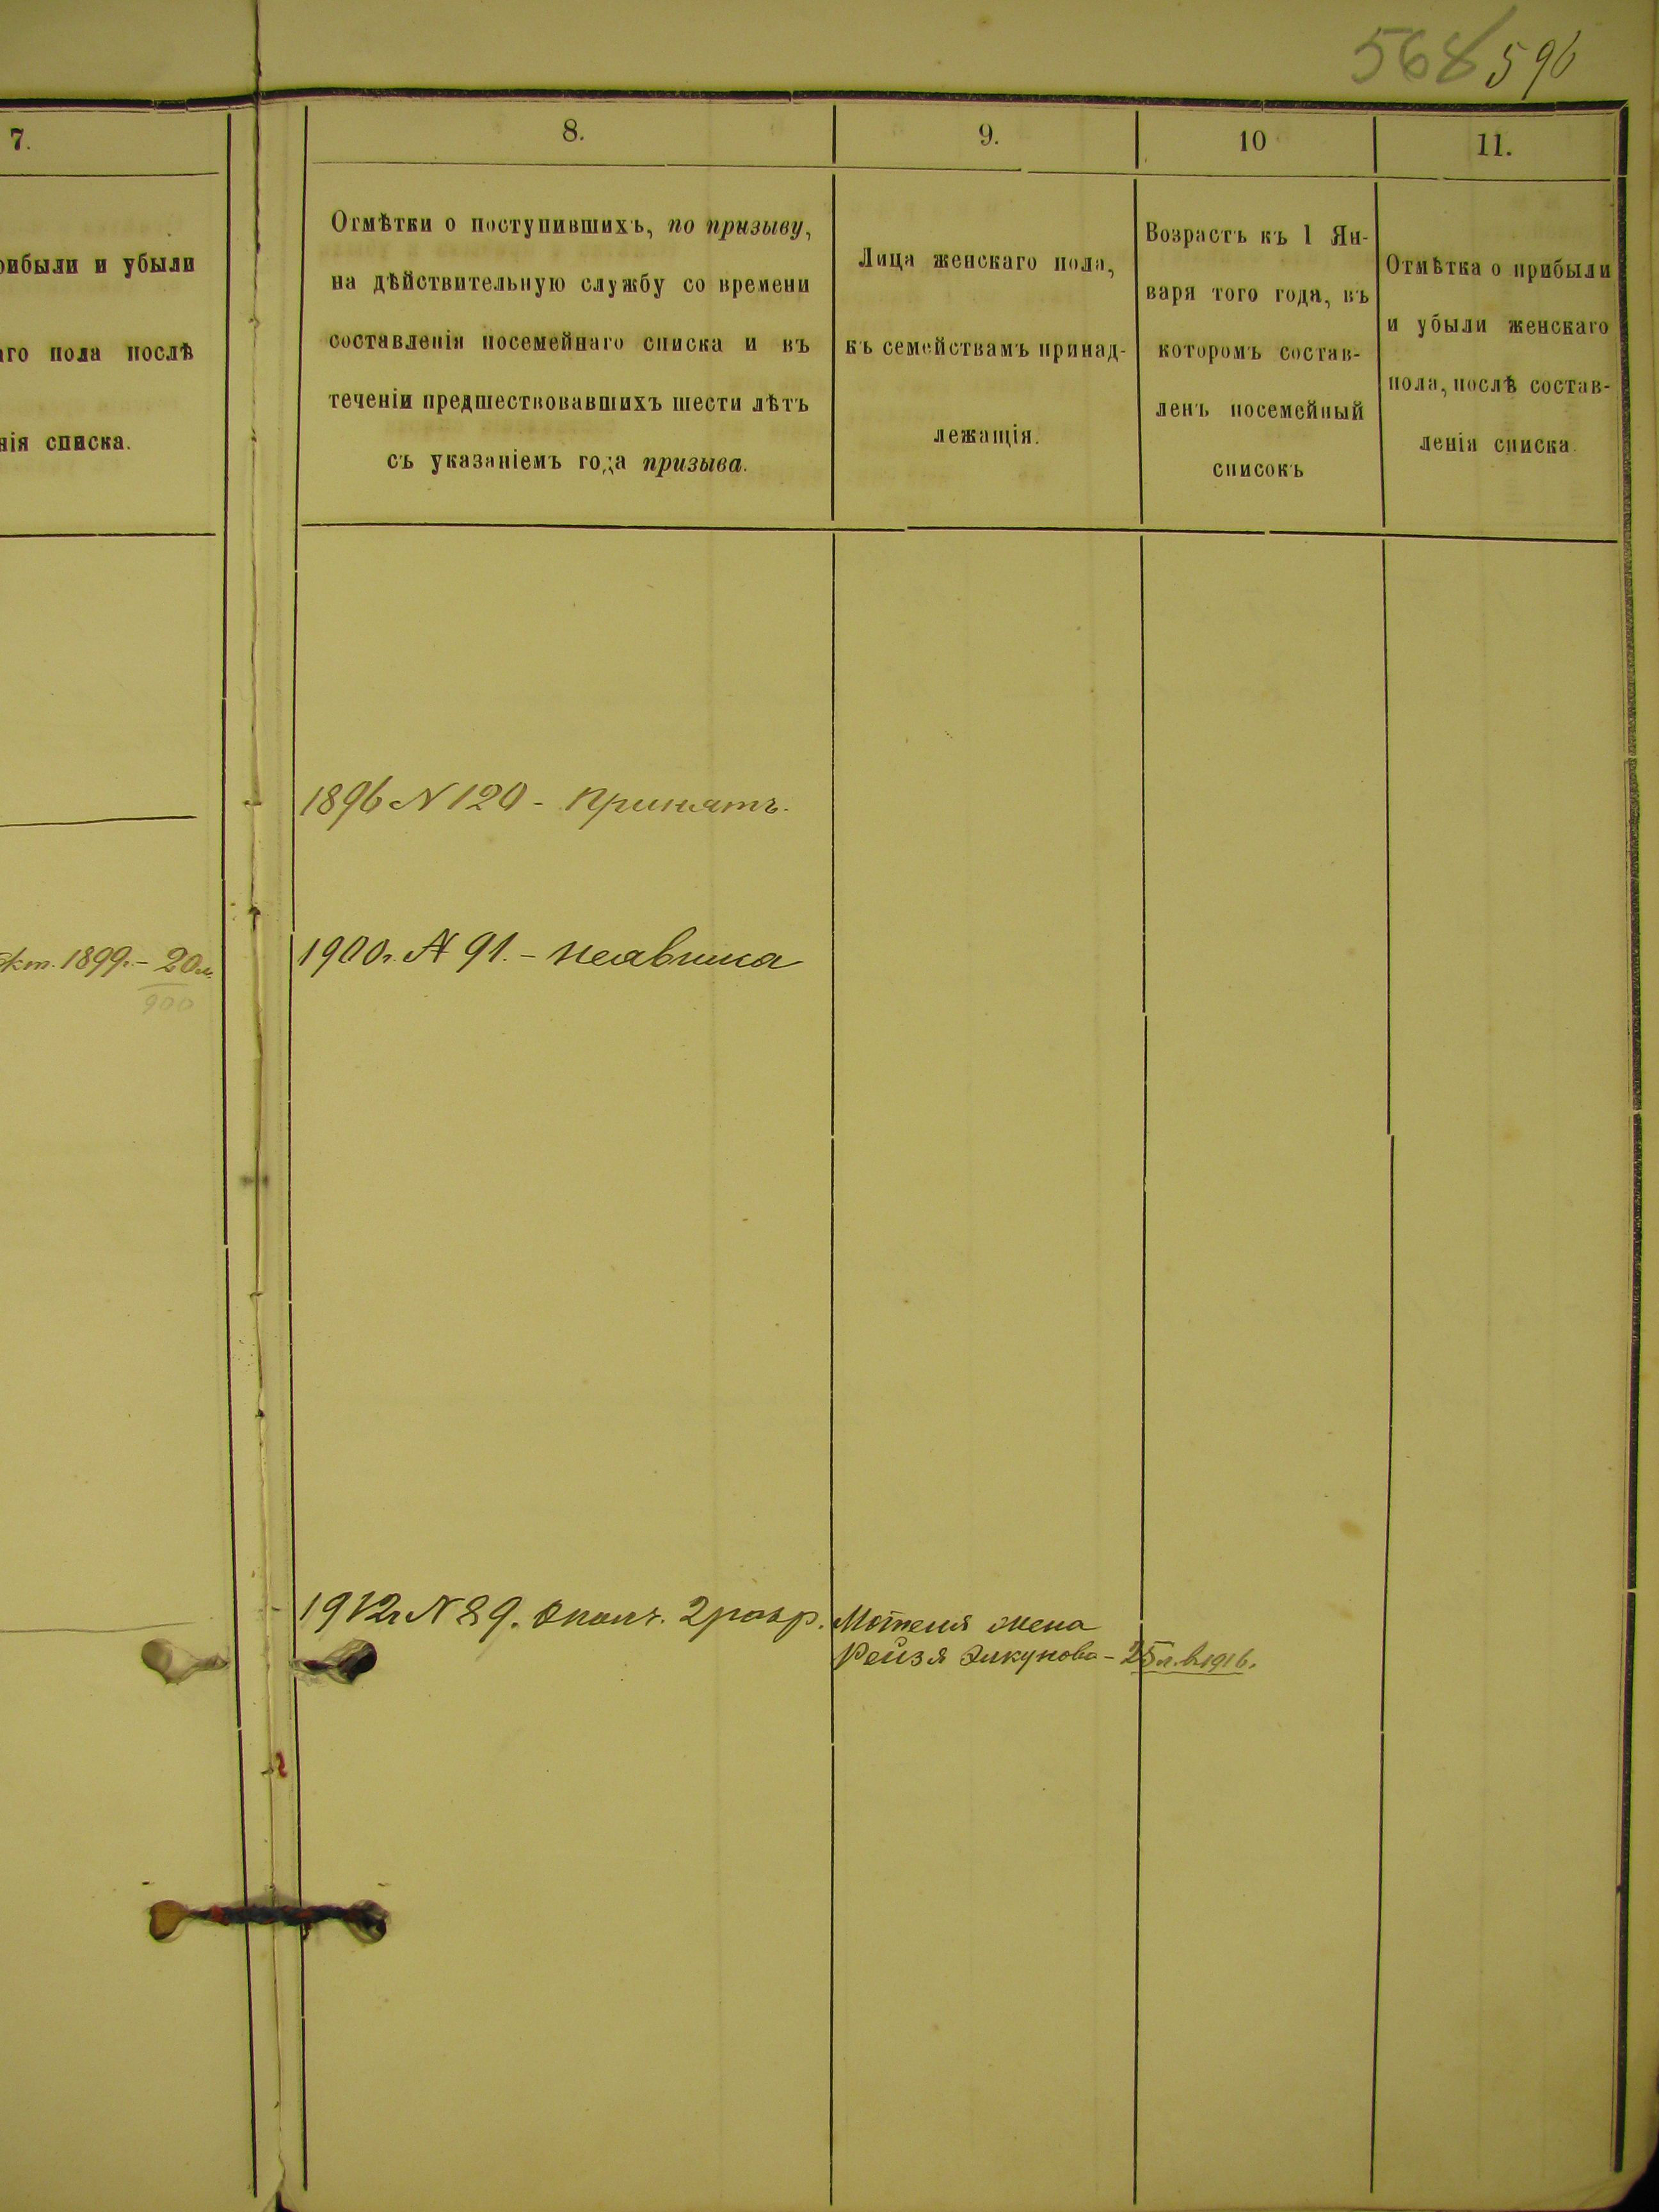 568 596
7.
8.
9.
10
11.
рибыли и убыли
аго пола послѣ
нія списка.
Отмѣтки о поступившихъ, по призыву,
на дѣйствительную службу со времени
составленія посемейнаго списка и въ
теченіи предшествовавшихъ шести лѣтъ
съ указаніемъ года призыва.
Лица женскаго пола,
къ семействамъ принад-
лежащія.
Возрастъ къ 1 Ян-
варя того года, въ
которомъ состав-
ленъ посемейный
списокъ
Отмѣтка о прибыли
и убыли женскаго
пола, послѣ состав-
ленія списка.
1896 N 120 - Принятъ.
окт. 1899г. - 20 л.
900
1900г. N 91. - неявился
1912г N 89. Ополч. 2 разр.
Мотеля жена
Рейзя - 25 л. в 1916.